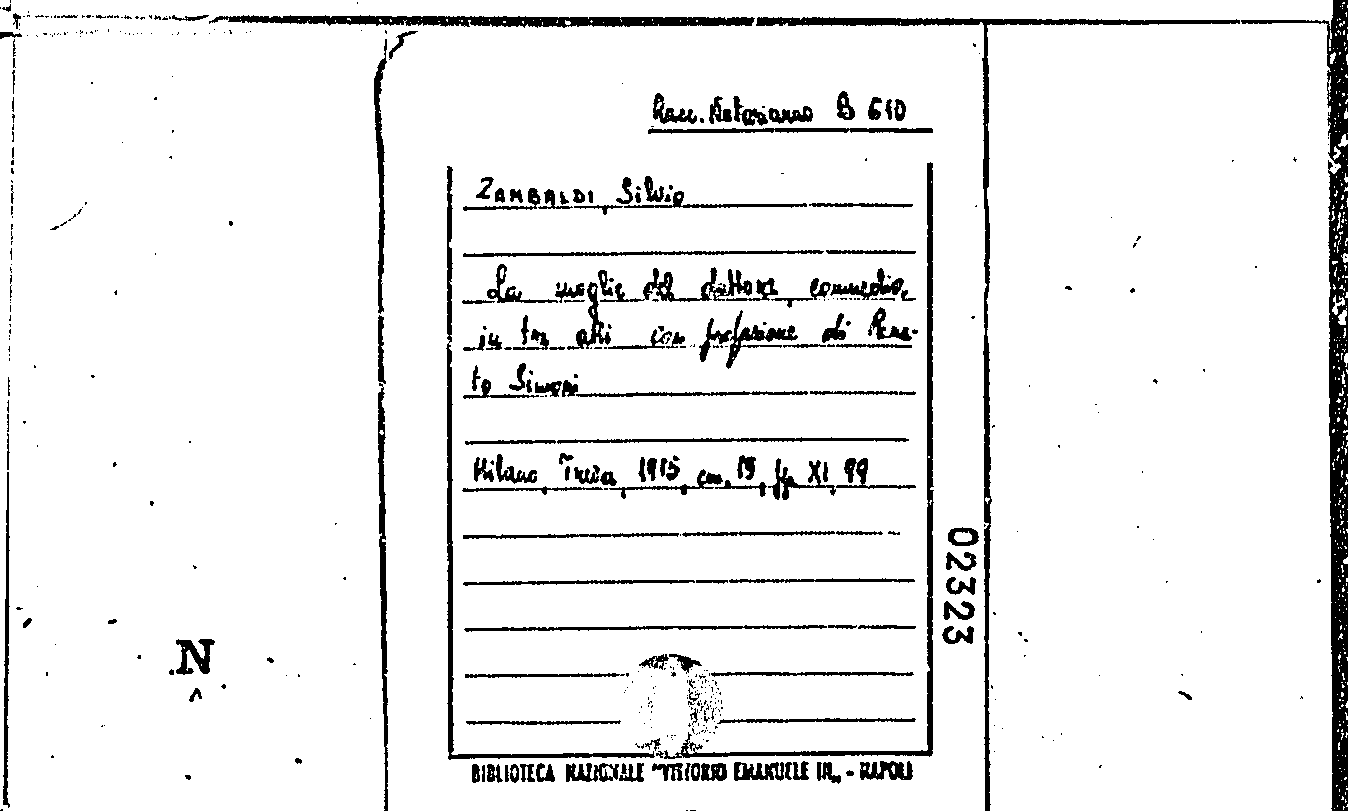 Racc. Notariano B 610
ZAMBALDI, Silvio
La moglie del dottore, commedia,
in tre atti con prefazione di Rena-
to Simoni
Milano, Treves, 1915, cm. 19, pp. XI, 99
02323
N
BIBLIOTECA NAZIONALE "VITTORIO EMANUELE III„ - NAPOLI